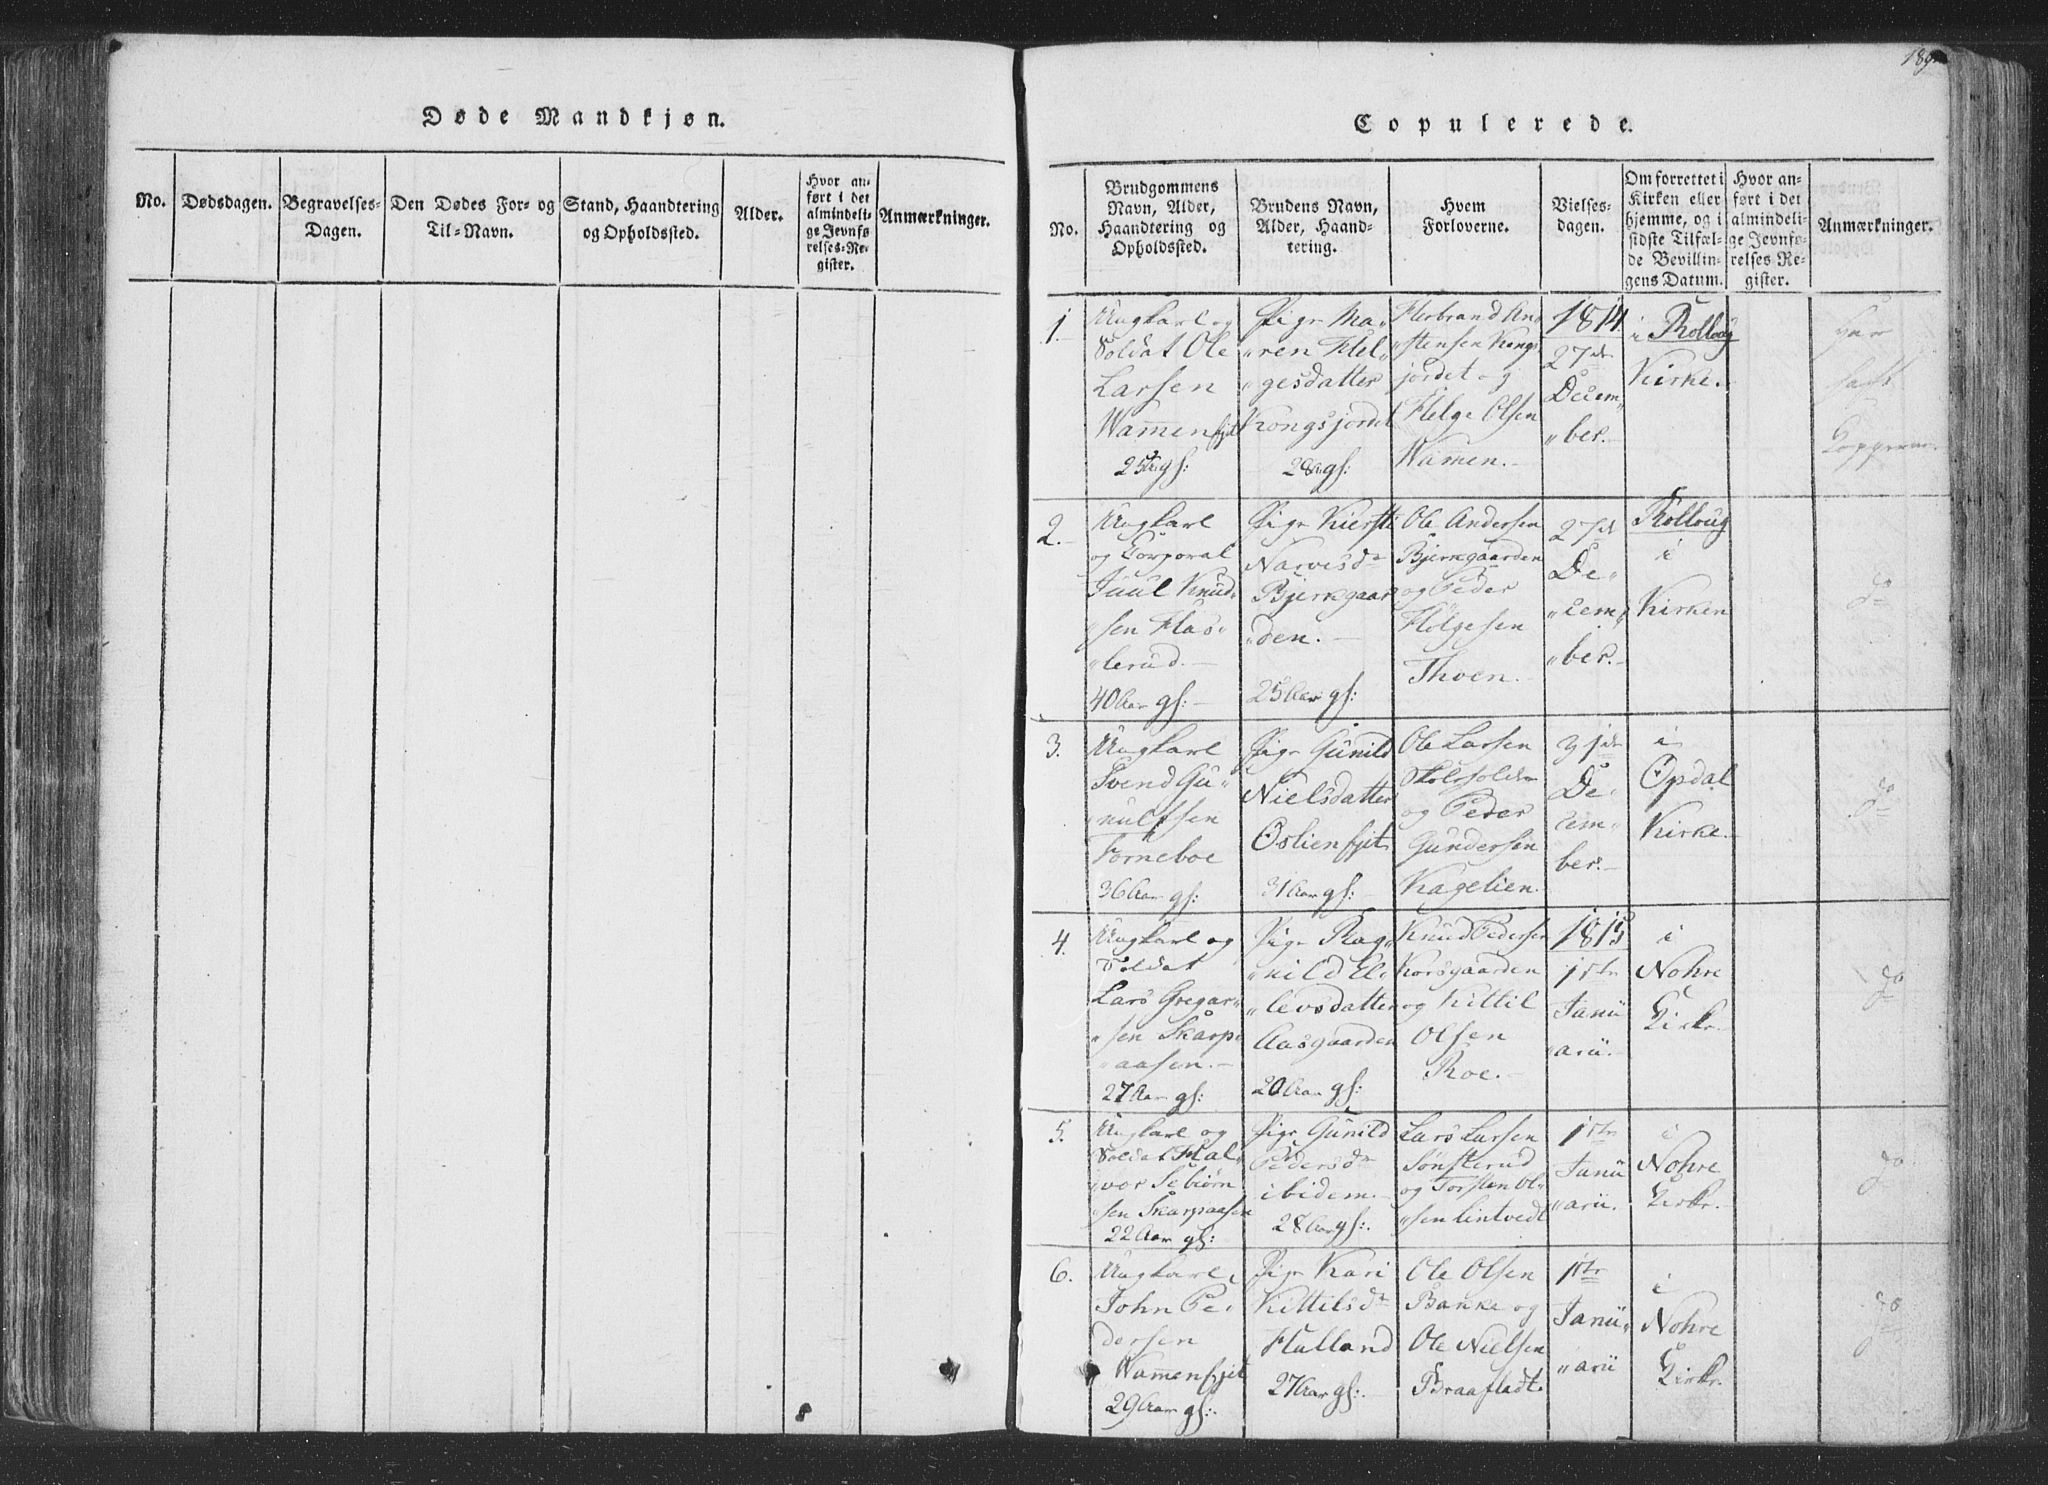 Døde Mandkjøn.
No.
Dødsdagen.
Begravelses-
Dagen.
Den Dødes For- og
Til-Navn.
Stand, Haandtering
og Opholdssted.
Alder.
Hvor an-
ført i det
almindeli-
ge Jevnfø
relses-Re-
gister.
Anmærkninger.
189
Copulerede.
No.
Brudgommens
Navn, Alder,
Haandtering og
Opholdssted.
Brudens Navn,
Alder, Haand-
tering.
Hvem
Forloverne.
Vielses-
dagen.
Om forrettet i
Kirken eller
hjemme, og i
sidste Tilfæl-
de Bevillin-
gens Datum.
Hvor an-
ført i det
almindeli-
ge Jevnfø-
relses Re-
gister.
Anmærkninger.
1.
Ungkarl og
Soldat Ole
Larsen
Wamen fjit
25 Aar gl:
Pige Ma-
"ren Hel-
"gesdatter
Kongsjordet
28 Aar gl:
Herbrand An-
stensen Kongs
jordet og
Helge Olsen
Wamen.
1814
27de
Decem-
"ber.
i Rolloug
Kirke.
har
haft
Kopperne.
2.
Ungkarl
og Corporal
Juul Knud-
"sen Flas-
"lerud.
40 Aar gl:
Pige Kiersti
Narvesdr
Bjerkgaar
"den.
25 Aar gl:
Ole Andersen
Bjerkgaarden
og Peder
Helgesen
Thoen.
27de
De-
"cem-
"ber.
Rolloug
i
Kirken
do
3.
Ungkarl
Svend Gu-
nulfsen
Forneboe
36 Aar gl:
Pige Gunild
Nielsdatter
Oslien fjit
31 Aar gl:
Ole Larsen
Skoleholder
og Peder
Gundersen
Kagelien.
31de
De-
cem-
ber.
i
Opdal
Kirke.
do
4.
Ungkarl og
Soldat
Lars Gregar-
"sen Skarp-
"aasen.
27 Aar gl:
Pige Rag-
"nild El-
"levsdatter
Aasgaarden
20 Aar gl:
Knud Pedersen
Korsgaarden
og Kittil
Olsen
Roe.
1815
1ste
Janu
"arii.
i
Nohre
Kirke.
do
5.
Ungkarl og
Soldat Hal-
"vor Sebiørn
"sen Skarpaasen
22 Aar gl:
Pige Gunild
Pedersdr
ibidem.
28 Aar gl:
Lars Larsen
Sønsterud
og Torsten Ol-
"sen Lintvedt
1ste
Janu
"arii.
i
Nohre
Kirke.
do
6.
Ungkarl
John Pe-
dersen
Wamen fjit
29 Aar gl:
Pige Kari
Kittilsdr
Halland
27 Aar gl:
Ole Olsen
Bakke og
Ole Nielsen
Braafladt
1ste
Janu-
"arii
i
Nohre
Kirke.
do